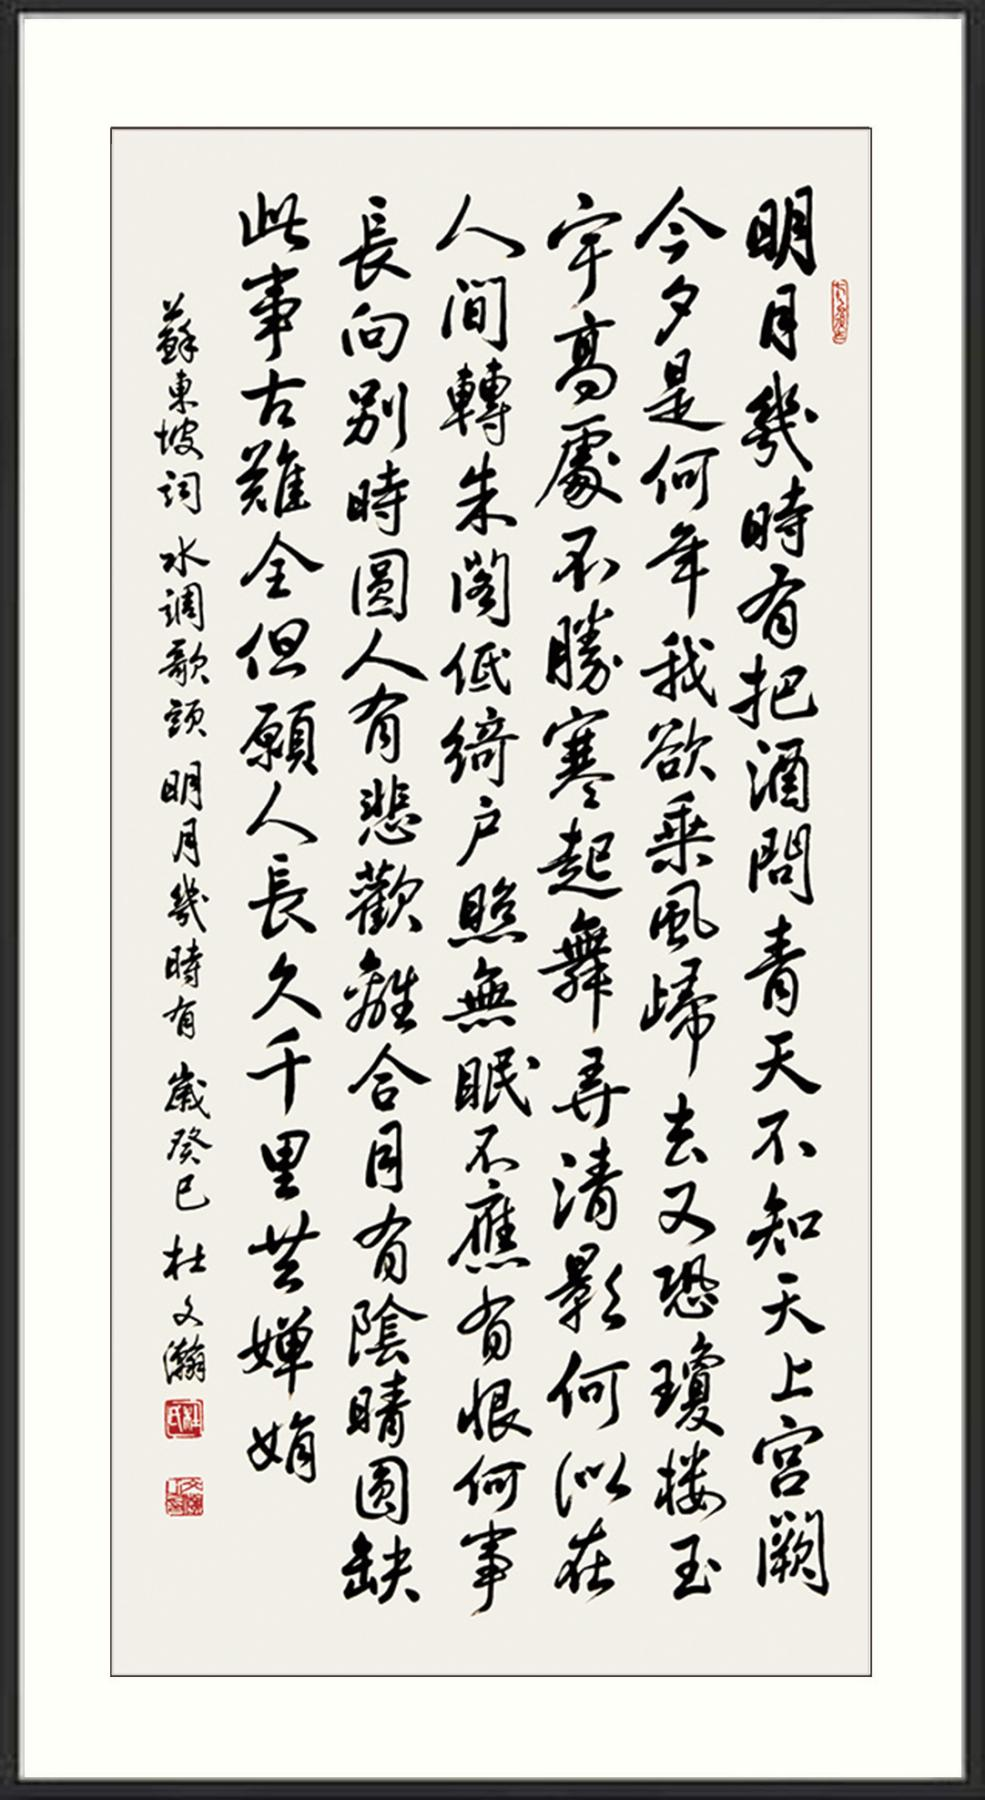 明月幾時有把酒問青天不知天上宮闕
今夕是何年我欲乘風歸去又恐瓊楼玉
宇高處不勝寒起舞弄清影何似在
人間轉朱閣低綺户照無眠不應有恨何事
長向别時圓人有悲歡離合月有陰晴圆缺
此事古難全但願人長久千里共嬋娟
蘇東坡詞 水調歌頭 明月幾時有 歲癸巳 杜文瀚
杜氏